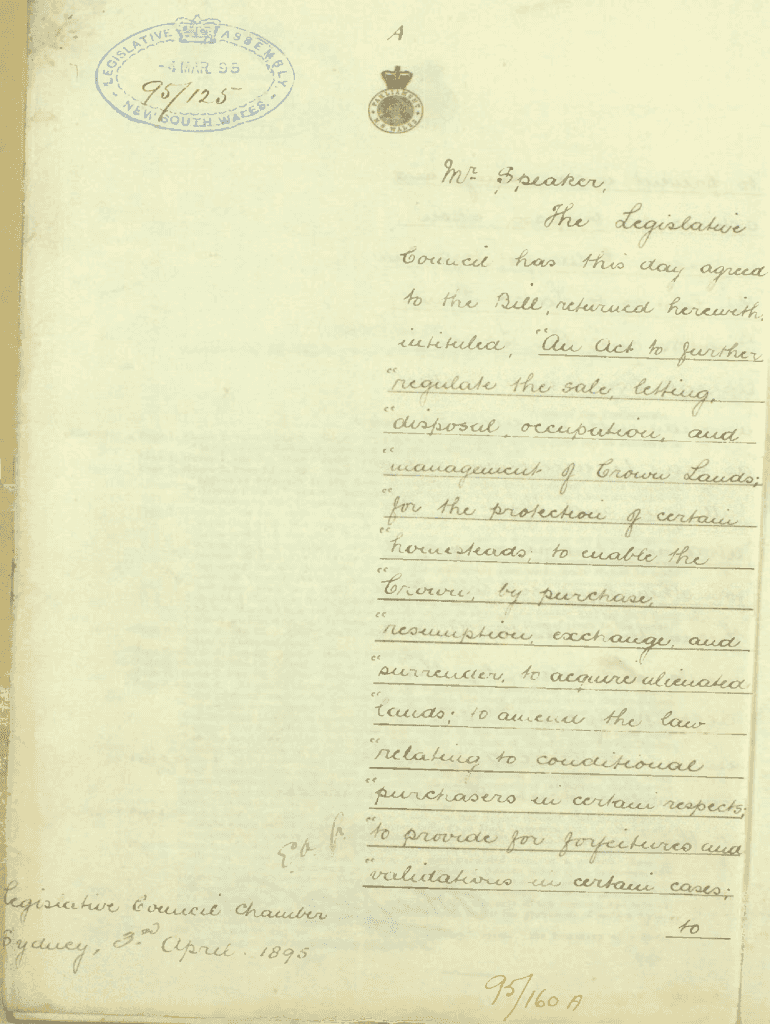 A
LEGISLATIVE ASSEMBLY
-4 MAR 95
95/125
NEW SOUTH WALES.
PARLIAMENT
N.S. WALES
Mr. Speaker,
The Legislative
Council has this day agreed
to the Bill, returned herewith,
intituled, "An Act to further
"regulate the sale, letting,
"disposal, occupation, and
"management of Crown Lands;
"for the protection of certain
"homesteads; to enable the
"Crown, by purchase,
"resumption, exchange, and
"surrender, to acquire alienated
"lands; to amend the law
"relating to conditional
"purchasers in certain respects;
"to provide for forfeitures and
"validations in certain cases;
to
Legislative Council Chamber
Sydney, 3rd April. 1895
95/160 A